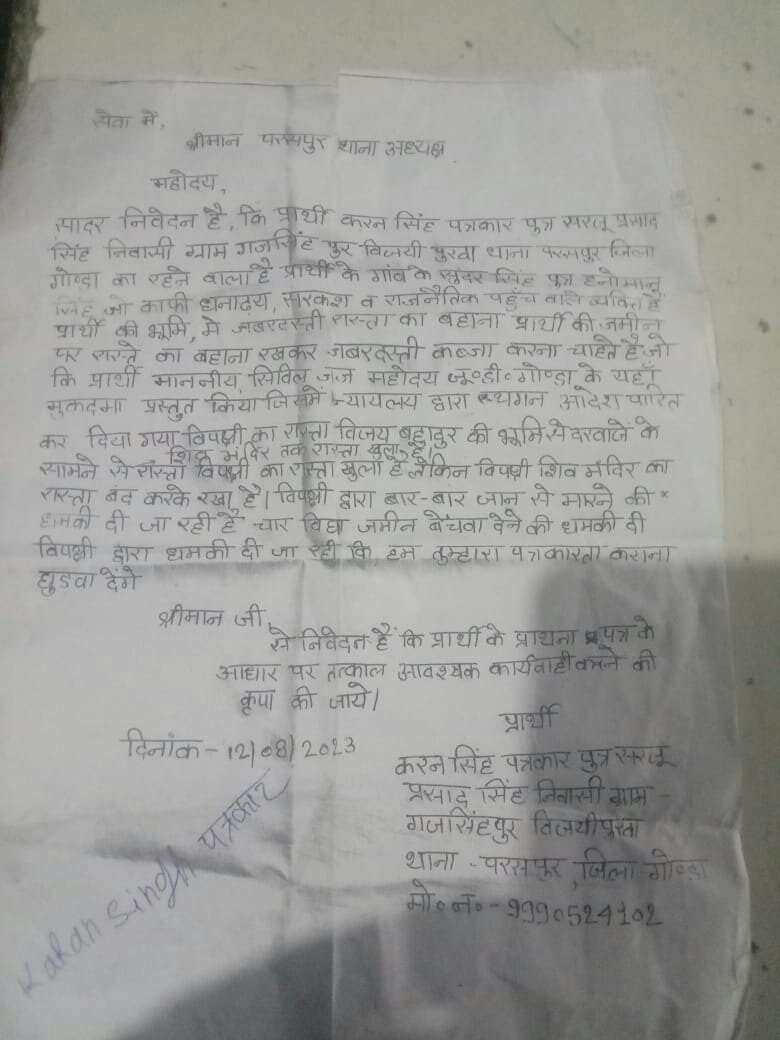 सेवा में,
श्रीमान परसपुर थाना अध्यक्ष
महोदय,
सादर निवेदन है, कि प्रार्थी करन सिंह पत्रकार पुत्र सरजू प्रसाद
सिंह निवासी ग्राम गजसिंह पुर विजयी पुरवा थाना परसपुर जिला
गोण्डा का रहने वाला है प्रार्थी के गांव के सुंदर सिंह पुत्र हनोमान
सिंह जो काफी धनाढय, सरकश व राजनैतिक पहुंच वाले व्यक्ति है
प्रार्थी की भूमि, मे जबरदस्ती रास्ता का बहाना प्रार्थी की जमीन
पर रास्ते का बहाना रखकर जबरदस्ती कब्जा करना चाहते है जो
कि प्रार्थी माननीय सिविल जज महोदय जू०डी० गोण्डा के यहाँ
मुकदमा प्रस्तुत किया जिसमें न्यायलय द्वारा स्थगन आदेश पारित
कर दिया गया विपक्षी का रास्ता विजय बहादुर की भूमि से दरवाजे के
शिव मंदिर तक रास्ता खुला है।
सामने से रास्ता विपक्षी का रास्ता खुला है लेकिन विपक्षी शिव मंदिर का
रास्ता बंद करके रखा है। विपक्षी द्वारा बार-बार जान से मारने की
धामकी दी जा रही है चार विघा जमीन बेंचवा देने की धमकी दी
विपक्षी द्वारा धामकी दी जा रही कि हम तुम्हारा पत्रकारता कराना
छुडवा देंगे
श्रीमान जी,
से निवेदन है कि प्रार्थी के प्राथना पत्र के
आधार पर तत्काल आवश्यक कार्यवाही करने की
कृपा की जाये।
प्रार्थी
दिनांक - 12/08/2023
करन सिंह पत्रकार पुत्र सरजू
प्रसाद सिंह निवासी ग्राम -
गजसिंहपुर विजयीपुरवा
थाना - परसपुर, जिला गोण्डा
मो० नं० - 9990524102
Karan Singh पत्रकार